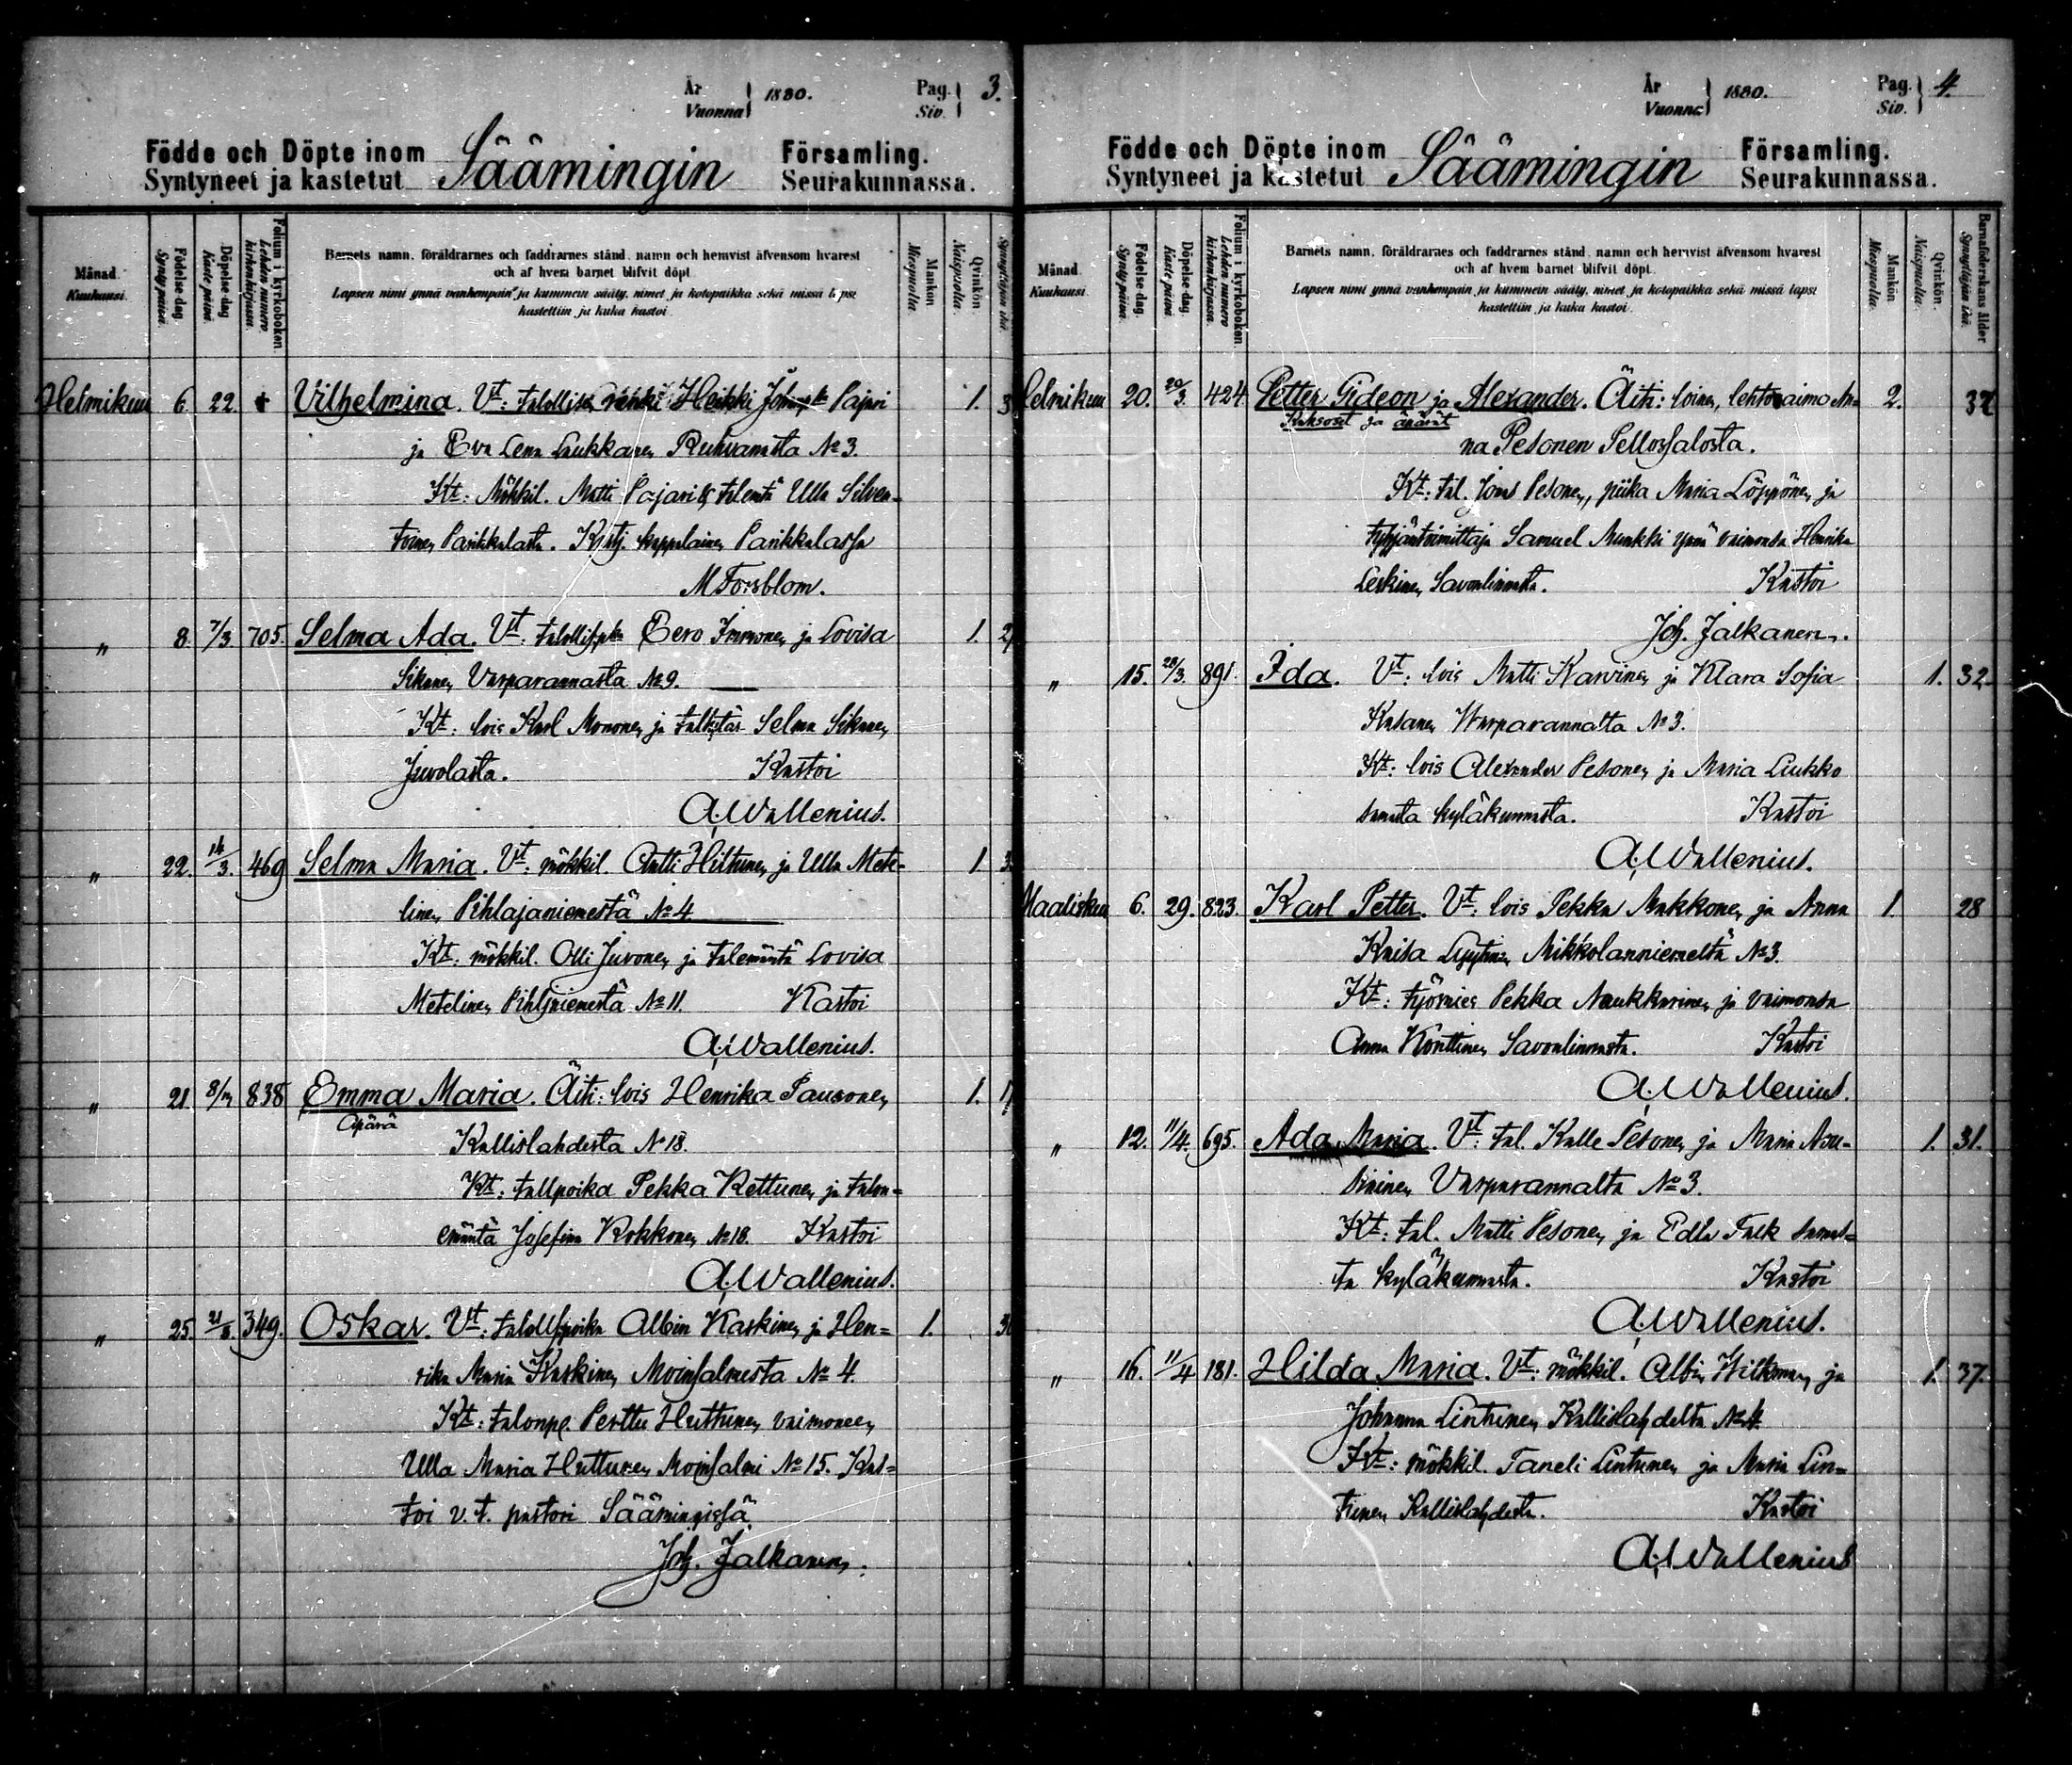 År
Vuonna
1880.
Pag.
Siv.
3.
Födde och Döpte inom
Syntyneet ja kastetut
Säämingin
Församling.
Seurakunnassa.
Månad.
Kuukausi.
Födelse dag.
Synty päivä.
Döpelse dag
Kaste päivä.
Folium i kyrkoboken.
Lehden numero
kirkonkirjassa.
Barnets namn, föräldrarnes och faddrarnes stånd, namn och hemvist äfvensom hvarest
och af hvem barnet blifvit döpt.
Lapsen nimi ynnä vanhempain ja kummein sääty, nimet ja kotopaikka sekä missä lapsi
kastettiin ja kuka kastoi.
Mankön.
Miespuolta.
Qvinkön.
Naispuolta.
Synnyttäjän ikä.
Helmikuu 6. 22. Vilhelmina. Vt: Heikki Pajari 1. 3
ja Eva Lena Laukkanen Ruhvanasta No 3.
Kt: Mökkil. Matti Pajari Ulla Silven-
toinen Parikkalasta. kappalainen Parikkalassa
M Forsblom.
" 8. 7/3. 705. Selma Ada. Vt: Eero Immonen ja Lovisa 1. 2
Sikanen Varparannasta No 9.
Kt: lois Karl Mononen ja Selma Sikanen
Juvolasta. Kastoi
A. Wallenius.
" 22. 14/3. 469 Selma Maria. Vt: mökkil. Antti Hiltunen ja Ulla Mete- 1. 3
linen Pihlajaniemestä No 4
Kt: mökkil. Olli Juvonen ja talemäntä Lovisa
Metelinen No 11. Kastoi
A. Wallenius.
" 21 838 Emma Maria. Äiti: lois Henrika Paunonen 1. 1
Äpärä
Kallislahdesta No 18.
Kt: tallpoika Pekka Kettunen ja talon-
emäntä Josefina Kokkonen No 18. Kastoi
A. Wallenius.
" 25. 349. Oskar. Vt: Albin Kaskinen ja Hen- 1. 3
rika Maria Kaskinen Moinsalmesta No 4.
Kt: Perttu Huttunen vaimoneen
Ulla Maria Huttunen Moinsalmi No 15. Kas-
toi v. t. pastori Säämingissä
Joh. Jalkanen.
År
Vuonna
1880.
Pag.
Siv.
4.
Födde och Döpte inom
Syntyneet ja kastetut
Säämingin
Församling.
Seurakunnassa.
Månad.
Kuukausi.
Födelse dag.
Synty päivä.
Döpelse dag.
Kaste päivä.
Folium i kyrkoboken.
Lehden numero
kirkonkirjassa.
Barnets namn, föräldrarnes och faddrarnes stånd, namn och hemvist äfvensom hvarest
och af hvem barnet blifvit döpt.
Lapsen nimi ynnä vanhempain ja kummein sääty, nimet ja kotopaikka sekä missä lapsi
kastettiin ja kuka kastoi.
Mankön.
Miespuolta.
Qvinkön.
Naispuolta.
Barnaföderskans ålder
Synnyttäjän ikä.
Helmikuu 20. 20/3. 424. Petter Gideon ja Alexander. Äiti: loinen, An- 2. 32
Kaksoset ja äpärät
na Pesonen Pellossalosta.
Kt: tal. Jonas Pesonen, piika Maria Löppönen ja
Samuel Munkki ynnä vaimonsa Henrika
Leskinen Savonlinnasta. Kastoi
Joh. Jalkanen.
" 15. 28/3. 891. Ida. Vt: lois Matti Karvinen ja Klara Sofia 1. 32.
Kasanen Warparannalta No 3.
Kt: lois Alexander Pesonen ja Maria Liukko
samasta kyläkunnasta. Kastoi
A. Wallenius.
Maaliskuu 6. 29. 823. Karl Petter. Vt: lois Pekka Makkonen ja Anna 1. 28
Kaisa Lyytinen Mikkolanniemeltä No 3.
Kt: työmies Pekka Naukkarinen ja vaimonsa
Anna Konttinen Savonlinnasta. Kastoi
A. Wallenius.
" 12. 11/4. 695. Ada Maria. Vt: tal. Kalle Pesonen ja Maria Asu- 1. 31.
siainen Varparannalta No 3.
Kt: tal. Matti Pesonen ja Edla Falk samas-
ta kyläkunnasta. Kastoi
A. Wallenius.
" 16. 11/4 181. Hilda Maria. Vt: mökkil. Albin Wilkman ja 1. 37.
Johanna Lintunen Kallislahdelta No 4.
Kt: mökkil. Taneli Lintunen ja Maria Lin-
tunen Kallislahdesta. Kastoi
A. Wallenius